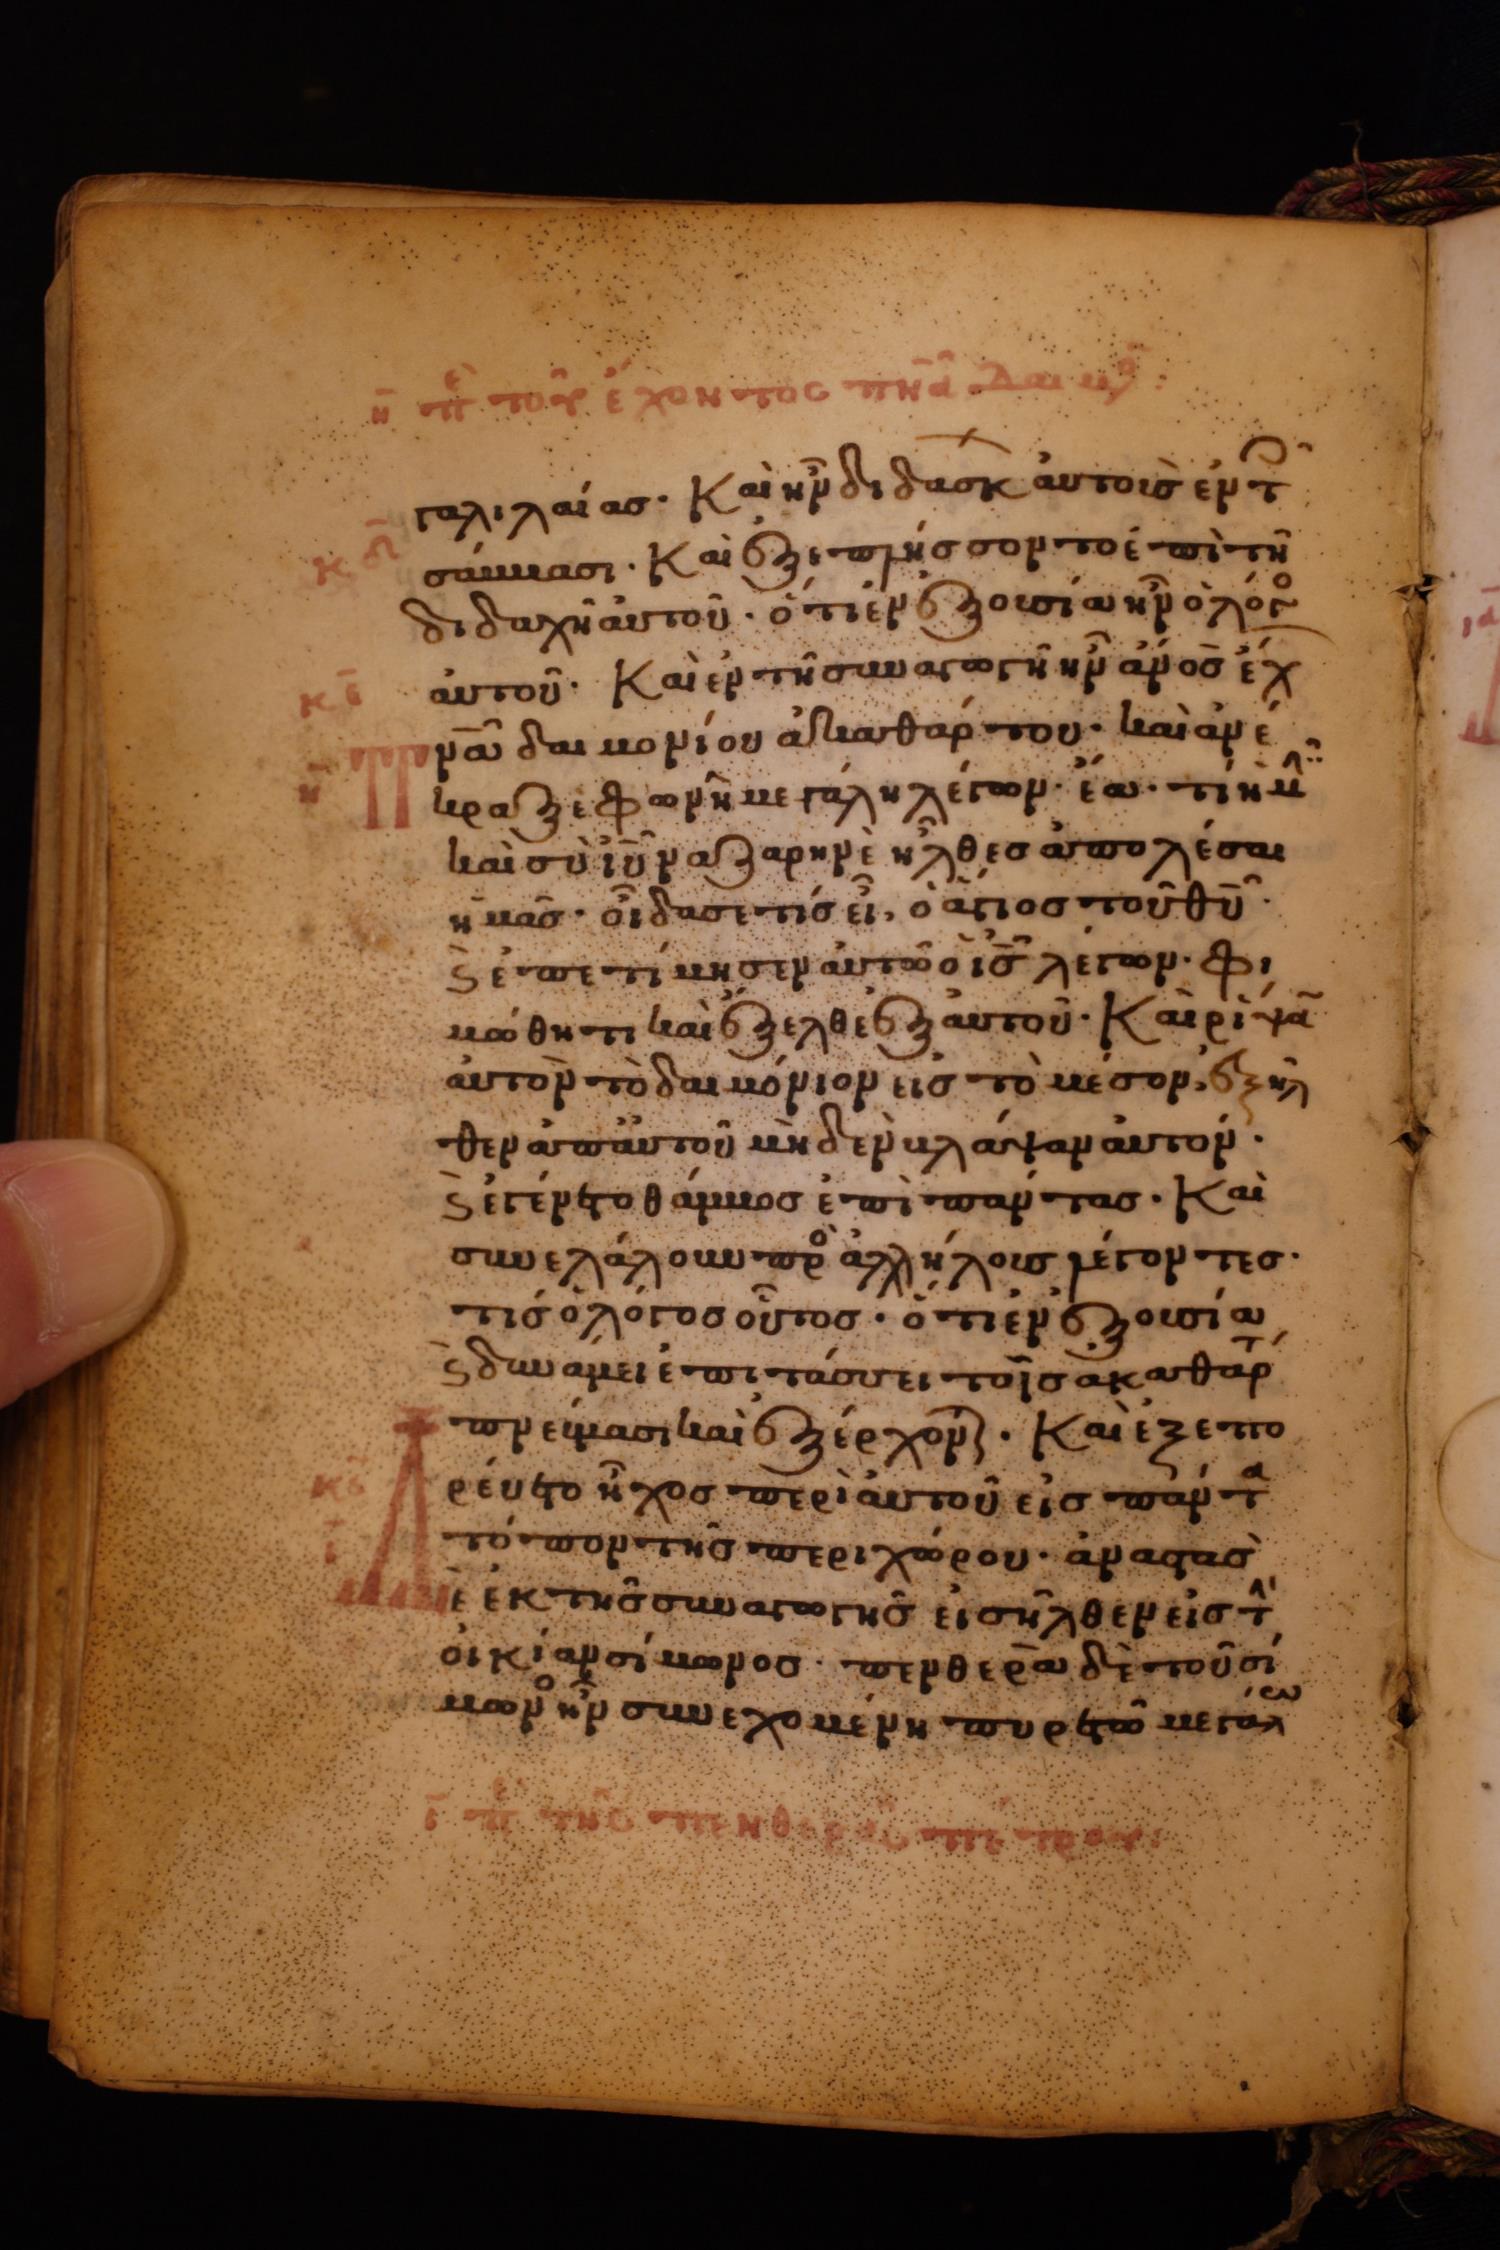 η̄ πὲ τοῦ ἔχοντος πν̄ᾶ δαιμο̄:
γαλιλαίας· Καὶ ἦν διδάσκ αὐτοὺς ἐν τ
σάμμασι· Καὶ ἐξεπλήσσοντο ἐπὶ τῆ
διδαχῆ αὐτοῦ· ὅτι ἐν ἐξουσία ἦν ὁ λόγο
αὐτοῦ· Καὶ ἐν τῆ συναγωγῆ ἦν ἄνο̄ς ἔχ
πν̄α δαιμονίου ἀκαθάρτου· καὶ ἀνέ
κραξε φωνῆ μεγάλη λέγων· ἔα· τί ἡμ
καὶ σὺ ῑῦ ναζαρηνὲ ἦλθες ἀπολέσαι
ἡμᾶς· οἶδά σε τίς εἶ, ὁ ἅγιος τοῦ θ̄ῦ·
ϗ ἐπετίμησεν αὐτῶ ὁ ῑς̄ λέγων· φι
μώθητι καὶ ἔξελθε ἐξ αὐτοῦ· Καὶ ρίψα
αὐτὸν τὸ δαιμόνιον εἰς τὸ μέσον, ἐξῆλ
θεν ἀπ' αὐτοῦ μηδὲν βλάψαν αὐτόν·
ϗ ἐγένετο θάμβος ἐπὶ πάντας· Καὶ
συνελάλουν προ ἀλλήλους λέγοντες·
τίς ὁ λόγος οὗτος· ὅτι ἐν ἐξουσία
ϗ δυνάμει ἐπιτάσσει τοῖς ἀκαθάρτ
πνεύμασι καὶ ἐξέρχον· Καὶ ἐξεπο
ρεύετο ἦχος περὶ αὐτοῦ εἰς πάντα
τόπον τῆς περιχώρου· ἀναστὰς
Δὲ ἐκ τῆς συναγωγῆς εἰσῆλθεν εἰς τ
οἰκίαν σίμωνος· πενθερὰ δὲ τοῦ σί
μωνο ἦν συνεχομένη πυρετῶ μεγάλω
ῑ πε τῆς πενθερᾶς πέτρου:
κδ̄
κε̄
η̄
κς̄
ῑ